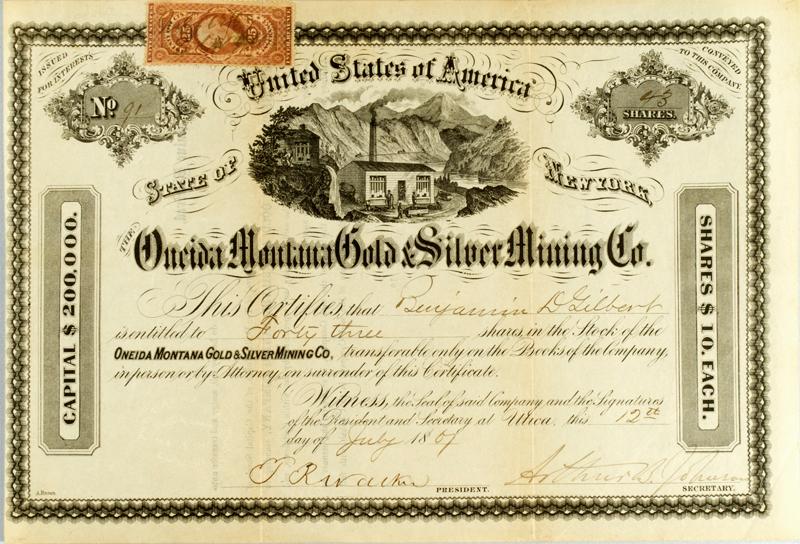 United States of America
ISSUED FOR INTERESTS
CONVEYED TO THIS COMPANY
No 91
43 SHARES.
STATE OF NEW YORK.
THE
Oneida Montana Gold & Silver Mining Co.
CAPITAL $200,000.
SHARES $10. EACH.
This Certifies, that Benjamin D Gilbert
is entitled to Forty three shares in the Stock of the
ONEIDA MONTANA GOLD & SILVER MINING CO, transferable only on the Books of the Company,
in person or by Attorney, on surrender of this Certificate.
Witness, the Seal of said Company and the Signatures
of the President and Secretary at Utica, this 12th
day of July 18
PRESIDENT.
SECRETARY.